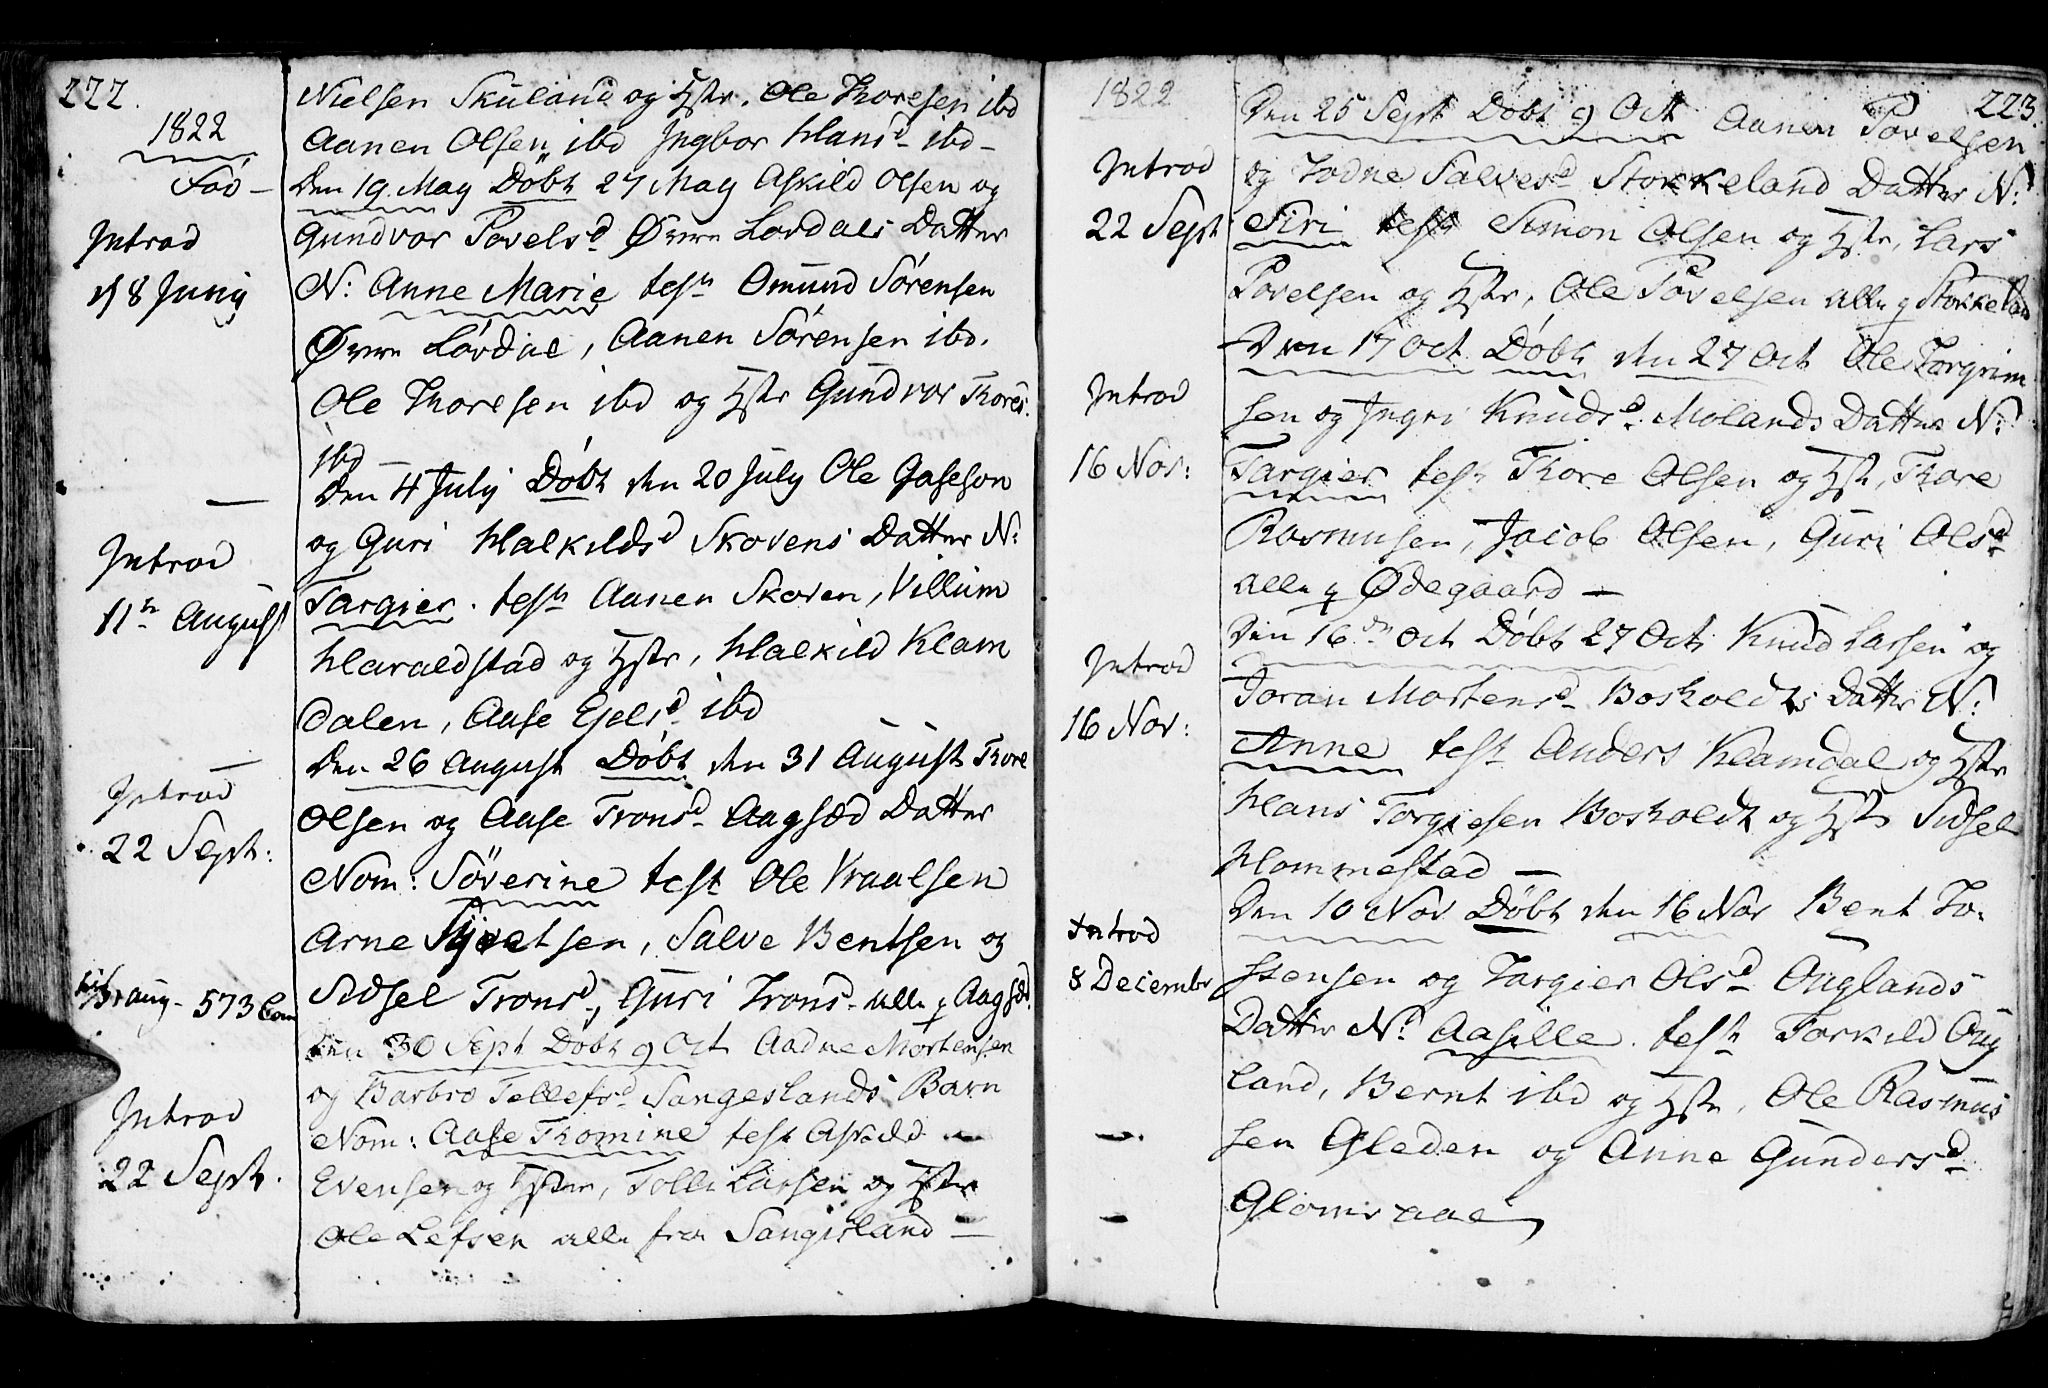 222.
1822
Född —
Introd
d 8 Junij
Introd
11te August
Introd
22 Sept:
aug - 573 Com
Introd
22 Sept.
Nielsen Skuland og Hstr, Ole Thoresen ibd
Aanen Olsen ibd Ingbor Hansd ibd -
Den 19 May Døbt 27 May Askild Olsen og
Gundvor Povelsd Øvre Lordals Datter
N: Anne Marie test Omund Sörensen
Øvre Lördal, Aanen Sörensen ibd.
Ole Thoresen ibd og Hstr Gundvor Thores.
ibd —
Den 4 July Døbt den 20 July Ole Gaseson
og Guri Halkildsd Skovens Datter N:
Targier. test Aanen Skoven, Villum
Haraldstad og Hstr, Halkild Klam
dalen, Aase Ejelsd ibd
Den 26 August Døbt den 31 August Thore
Olsen og Aase Tronsd Aagsæd Datter
Nom: Söverine test Ole Vraalsen
Arne, Salve Bentsen og
Sidsel Tronsd, Guri Tronsd alle p Aagsæd.
Den 30 Sept Døbt 9 Oct Aadne Mortensen
og Barbro Tellefsd Sangeslands Barn
Nom: Aase Thomine test Askild
Evensen og Hstr, Tolle Larsen og Hstr
Ole Lefsen alle fra Sangisland —
1822
223.
Introd
22 Sept
Introd
16 Nov:
Introd
16 Nov:
Introd
8 Decembr
Den 25 Sept Döbt 9 Oct Aanen Povelsen
og Todne Salvesd Stokkeland Datter N:
Siri test Simon Olsen og Hstr, Lars
Povelsen og Hstr, Ole Povelsen alle p Stokkeland
Den 17 Oct Döbt den 27 Oct Ole Torgrim
sen og Ingri Knudsd Molands Datter N:
Targier test Thore Olsen og Hstr, Thore
Rasmusen, Jacob Olsen, Guri Olsd
alle p Ødegaard —
Den 16de Oct Döbt 27 Oct Knud Larsen og
Joran Mortensd Bosholdts Datter N:
Anne test Anders Klamdal og Hstr
Hans Torgiesen Bosholdt og Hstr Sidsel
Hommestad —
Den 10 Nov Döbt den 16 Nov Bent To-
stensen og Targier Olsd Ouglands
Datter N: Aasille. test Torkild Oug
land, Bernt ibd og Hstr, Ole Rasmus
sen Gleden og Anne Gundersd
Glomsaae